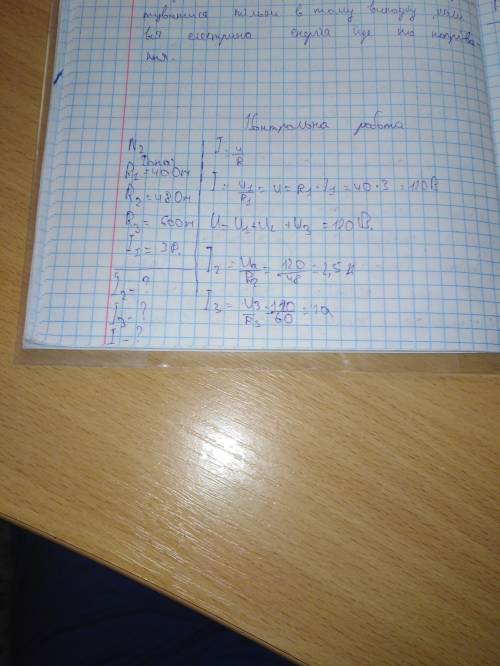 тільки в тому випадку, коли
вся електрична енергія іде на нагріва-
ння.
Контрольна робота
N2
Дано:
R1=40Ом
R2=48Ом
R3=60Ом
I1=3А.
I2-?
I3-?
I-?
I=U/R
I=U1/R1=U=R1·I1=40·3=120В
U=U1+U2+U3=120В.
I2=U2/R2=120/48=2,5А
I3=U3/R3=120/60=2А